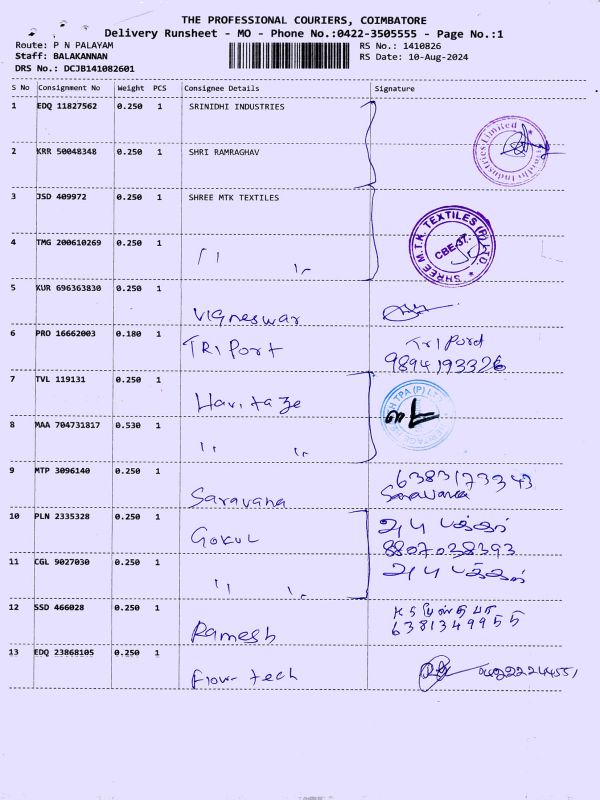 THE PROFESSIONAL COURIERS, COIMBATORE
Delivery Runsheet - MO - Phone No.:0422-3505555 - Page No.:1
Route: P N PALAYAM
RS No.: 1410826
Staff: BALAKANNAN
RS Date: 10-Aug-2024
DRS No.: DCJB141082601
S No Consignment No Weight PCS Consignee Details Signature
1 EDQ 11827562 0.250 1 SRINIDHI INDUSTRIES
2 KRR 50048348 0.250 1 SHRI RAMRAGHAV
3 JSD 409972 0.250 1 SHREE MTK TEXTILES
SHREE M.T.K. TEXTILES (P) LTD.
CBE-37.
4 TMG 200610269 0.250 1 " "
5 KUR 696363830 0.250 1
Vigneswar
6 PRO 16662003 0.180 1 TRIPort Tri Pord
9894193326
7 TVL 119131 0.250 1
Havitaze
8 MAA 704731817 0.530 1
" "
9 MTP 3096140 0.250 1 6383173343
Saravana Saravana
10 PLN 2335328 0.250 1
Gokul 8807038393
11 CGL 9027030 0.250 1
" "
12 SSD 466028 0.250 1
Ramesh 6381349955
13 EDQ 23868105 0.250 1
Flow tech